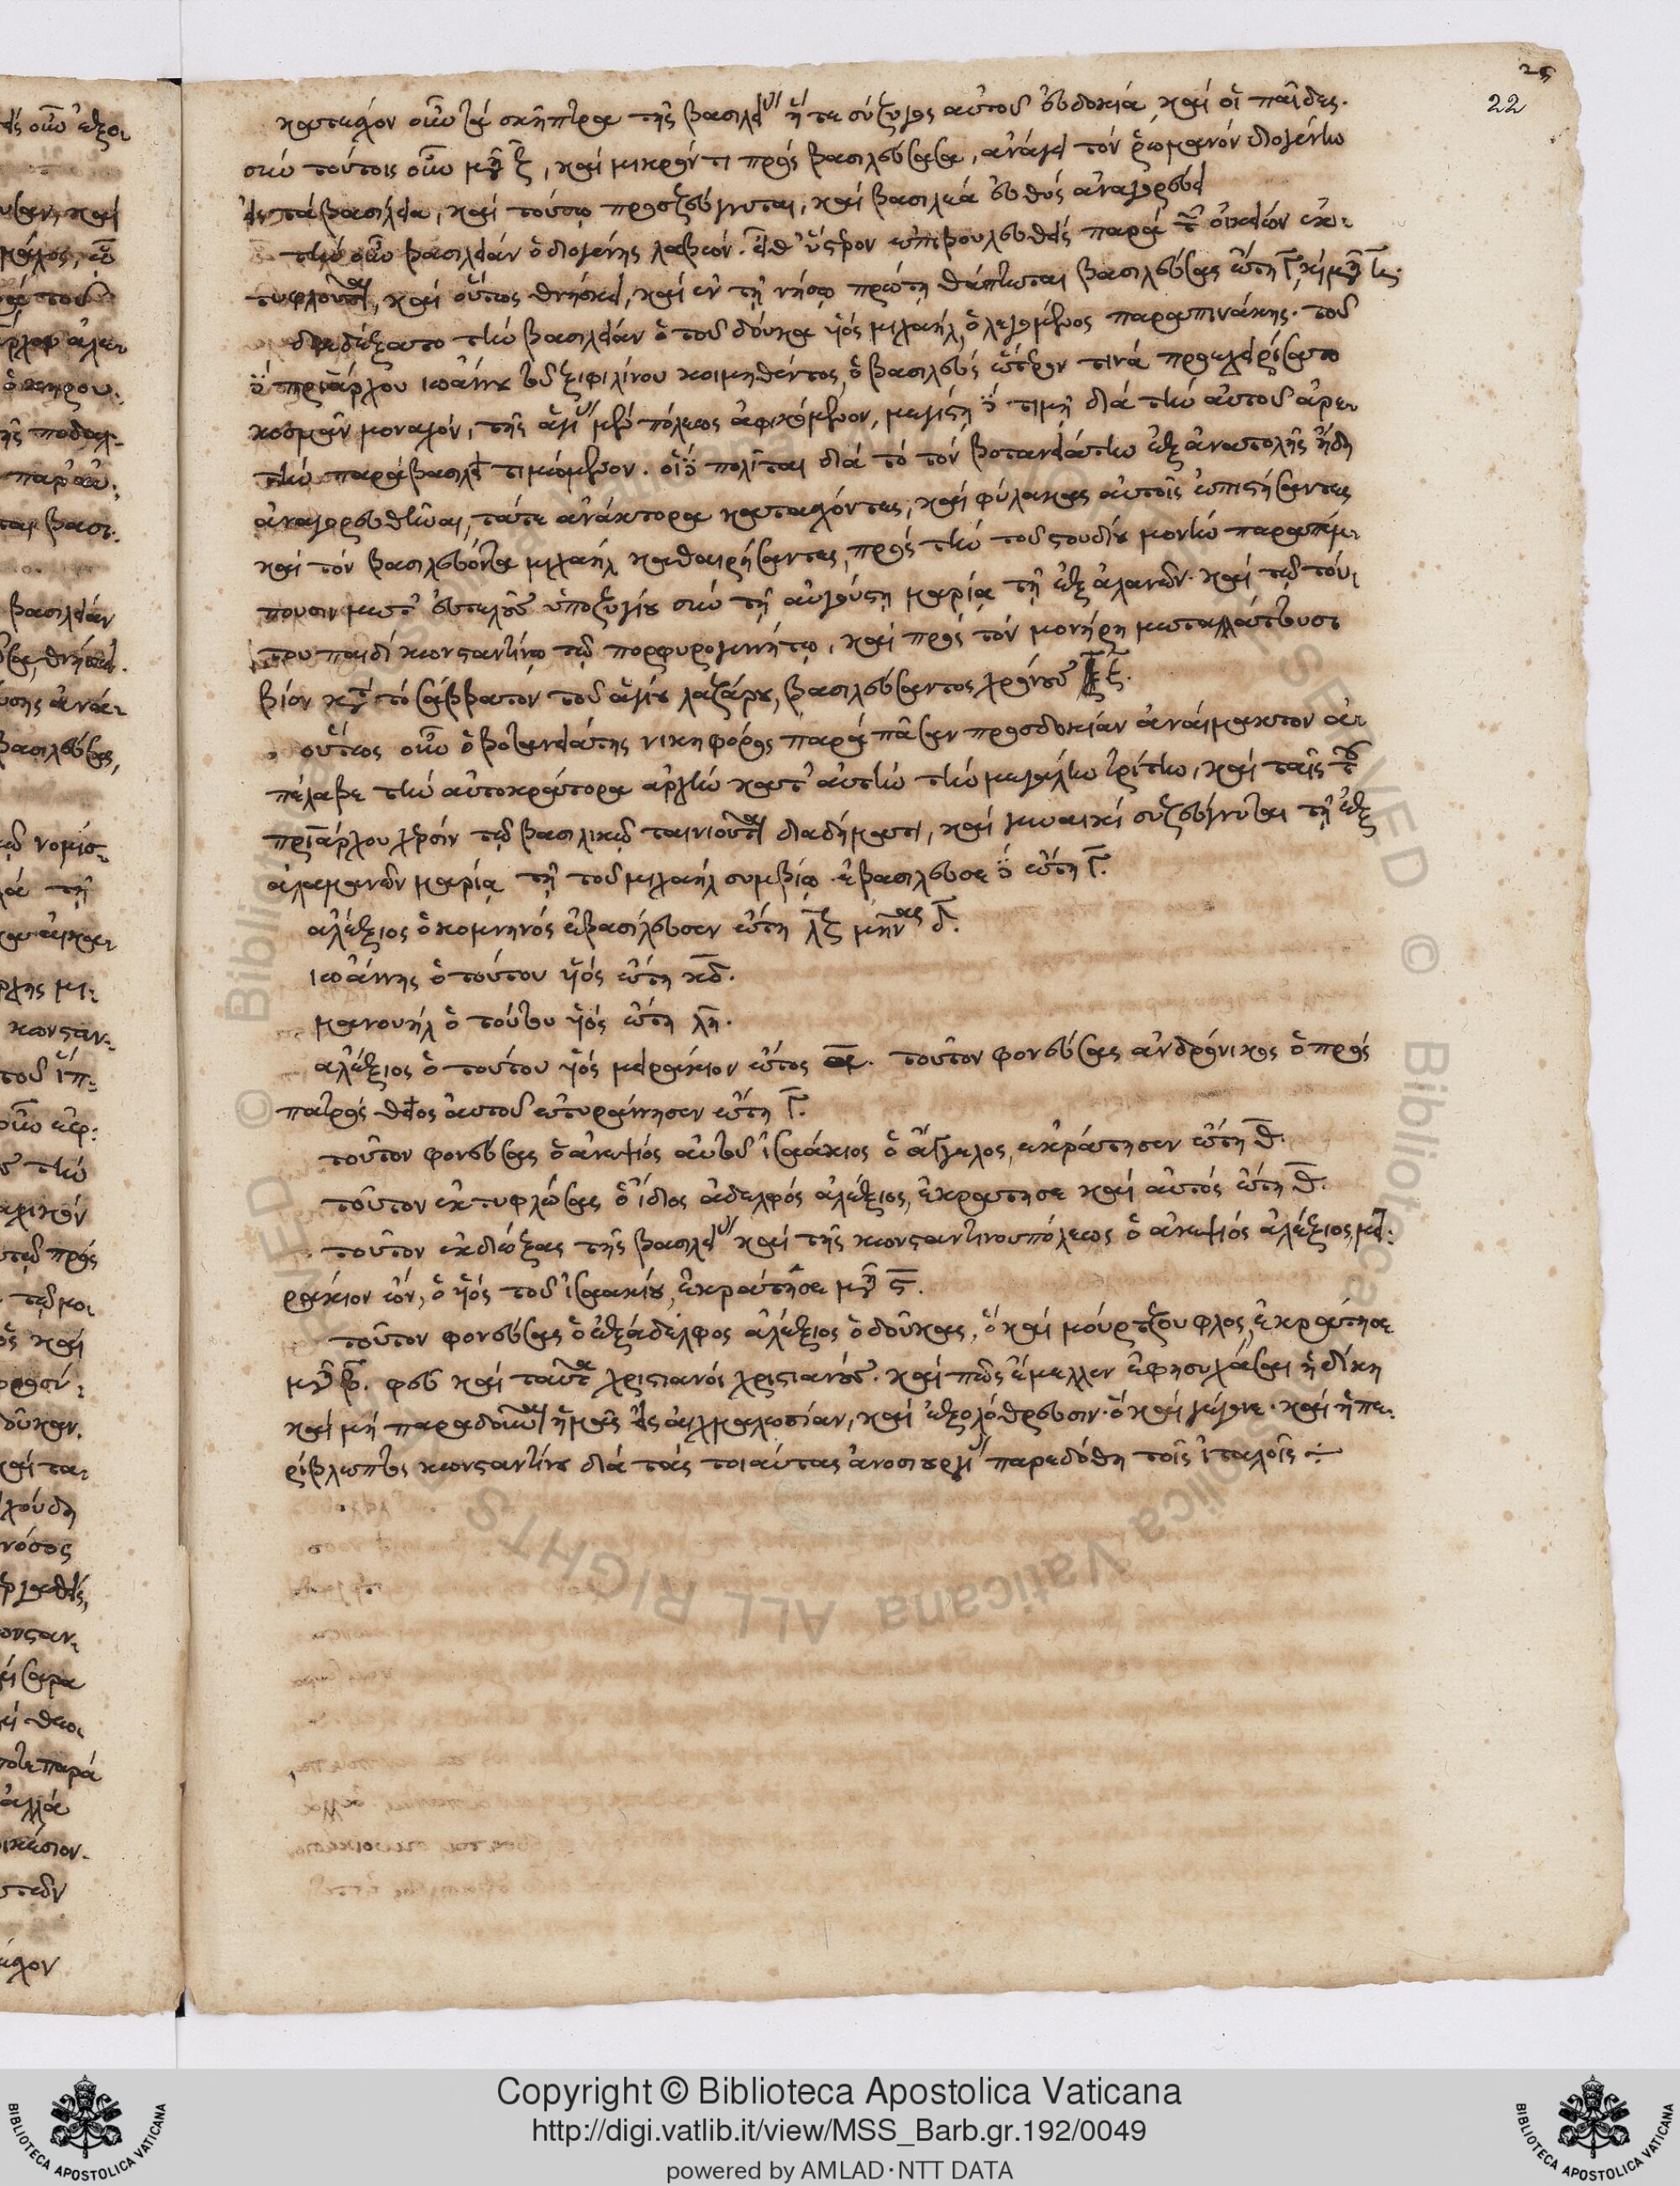 25
22
κατεῖχον οὖν τὰ σκῆπτρα τῆς βασιλείας ἥ τε σύζυγος αὐτοῦ εὐδοκία καὶ οἱ παῖδες.
σὺν τούτοις οὖν μῆνας ζ, καὶ μικρόν τι πρὸς βασιλεύσασα, ἀνάγει τὸν ῥωμανὸν διογένην
εἰς τὰ βασίλεια, καὶ τούτω προσζεύγνυται, καὶ βασιλέα εὐθὺς ἀναγορεύει
τὴν οὖν βασιλείαν ὁ διογένης λαβών. εἶθ' ὕστερον ἐπιβουλευθεὶς παρὰ τῶν οἰκείων ἐκ-
τυφλοῦται, καὶ οὕτως θνήσκει, καὶ ἐν τῇ νήσω πρώτη θάπτεται βασιλεύσας ἔτη γ καὶ μῆνας
διεδέξατο τὴν βασιλείαν ὁ τοῦ δούκα υἱὸς μιχαὴλ, ὁ λεγόμενος παραπινάκης. τοῦ
δὲ πριάρχου ἰωάννου τοῦ ξιφιλίνου κοιμηθέντος, ὁ βασιλεὺς ἕτερόν τινα προεχειρίσατο
κοσμᾶν μοναχόν, τῆς ἁγίας μὲν πόλεως ἀφικόμενον, μεγίστη δὲ τιμῇ διὰ τὴν αὐτοῦ ἀρε-
τὴν παρὰ βασιλεῖ τιμώμενον. οἱ δὲ πολῖται διὰ τὸ τὸν βοτανειάτην ἐξ ἀνατολῆς ἤδη
ἀναγορευθῆναι, τά τε ἀνάκτορα κατασχόντες, καὶ φύλακας αὐτοῖς ἐπιστήσαντες
καὶ τὸν βασιλεύοντα μιχαὴλ καθαιρήσαντες, πρὸς τὴν τοῦ στουδίου μονὴν παραπέμ-
πουσιν μετ' εὐτελοῦς ὑποζυγίου σὺν τῇ αὐγούστη μαρία τῇ ἐξ ἀλανῶν. καὶ τῶ τού-
του παιδὶ κωνσταντίνω τῶ πορφυρογεννήτω, καὶ πρὸς τὸν μονήρη μεταλλάττουσι
βίον κατὰ τὸ σάββατον τοῦ ἁγίου λαζάρου, βασιλεύσαντος χρόνους
οὕτως οὖν ὁ βοτανειάτης νικηφόρος παρὰ πᾶσαν προσδοκίαν ἀναίμακτον ἀ-
πέλαβε τὴν αὐτοκράτορα ἀρχὴν κατ' αὐτὴν τὴν μεγάλην τρίτην, καὶ ταῖς τοῦ
πριάρχου χερσὶν τῶ βασιλικῶ ταινιοῦται διαδήματι, καὶ γυναικὶ συζεύγνυται τῇ ἐξ
ἀλαμανῶν μαρία τῇ τοῦ μιχαὴλ συμβίω. ἐβασίλευσε δὲ ἔτη γ.
ἀλέξιος ὁ κομνηνὸς ἐβασίλευσεν ἔτη λζ μῆνας δ.
ἰωάννης ὁ τούτου υἱὸς ἔτη κδ.
μανουὴλ ὁ τούτου υἱὸς ἔτη λη.
ἀλέξιος ὁ τούτου υἱὸς μειράκιον ἔτος. τοῦτον φονεύσας ἀνδρόνικος ὁ πρὸς
πατρὸς θεῖος αὐτοῦ ἐτυράννησεν ἔτη γ.
τοῦτον φονεύσας ὁ ἀνεψιὸς αὐτοῦ ἰσαάκιος ὁ ἄγγελος, ἐκράτησεν ἔτη θ.
τοῦτον ἐκτυφλώσας ὁ ἴδιος ἀδελφὸς ἀλέξιος, ἐκράτησε καὶ αὐτὸς ἔτη θ.
τοῦτον ἐκδιώξας τῆς βασιλείας καὶ τῆς κωνσταντινουπόλεως ὁ ἀνεψιὸς ἀλέξιος, μει-
ράκιον ὤν, ὁ υἱὸς τοῦ ἰσαακίου, ἐκράτησε μῆνας ϛ.
τοῦτον φονεύσας ὁ ἐξάδελφος ἀλέξιος ὁ δούκας, ὁ καὶ μούρτζουφλος, ἐκράτησε
μῆνας β. φεῦ καὶ ταῦτα χριστιανοὶ χριστιανούς. καὶ πῶς ἔμελλεν ἐφησυχάσαι ἡ δίκη
καὶ μὴ παραδοῦναι ἡμᾶς εἰς αἰχμαλωσίαν, καὶ ἐξολόθρευσιν. ὃ καὶ γέγονε. καὶ ἡ πε-
ρίβλεπτος κωνσταντίνου διὰ τὰς τοιαύτας ἀνοσιουργίας παρεδόθη τοῖς ἰταλοῖς
Copyright © Biblioteca Apostolica Vaticana
http://digi.vatlib.it/view/MSS_Barb.gr.192/0049
powered by AMLAD·NTT DATA
BIBLIOTECA APOSTOLICA VATICANA
BIBLIOTECA APOSTOLICA VATICANA